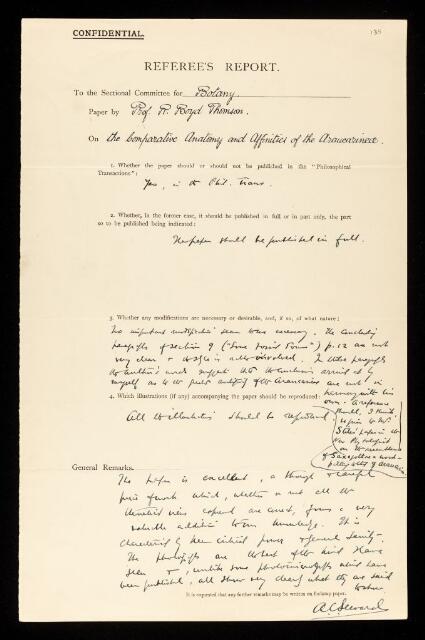 CONFIDENTIAL.
138
REFEREE'S REPORT.
To the Sectional Committee for Botany.
Paper by Prof. R. Boyd Thomson.
On the Comparative Anatomy and Affinities of the Araucarineæ.
1. Whether the paper should or should not be published in the "Philosophical
Transactions":
Yes, in the Phil. Trans.
2. Whether, in the former case, it should be published in full or in part only, the part
so to be published being indicated:
The paper should be published in full.
3. Whether any modifications are necessary or desirable, and, if so, of what nature:
No important modification seem to me necessary. The concluding
paragraphs of section 9 ("Some Fossil Forms") p. 12 are not
very clear & involved. In other paragraphs
the author's words suggest that the conclusions arrived at by
myself as to the great antiquity of the Araucarineae are not in
harmony with his
own. A reference
should, I think,
be given to Mr.
Stiles' paper in the
New Phytologist
4. Which illustrations (if any) accompanying the paper should be reproduced:
All the illustrations should be reproduced.
General Remarks.
The paper is excellent, a thorough & careful
piece of work which, whether or not all the
theoretical views expressed are correct, forms a very
valuable addition to our knowledge. It is
characterised by keen critical power & general sanity.
The photographs are the best of the kind I have
seen & unlike some photomicrographs which have
been published, all show very clearly what they are said
to show
It is requested that any further remarks may be written on foolscap paper.
A.C. Seward